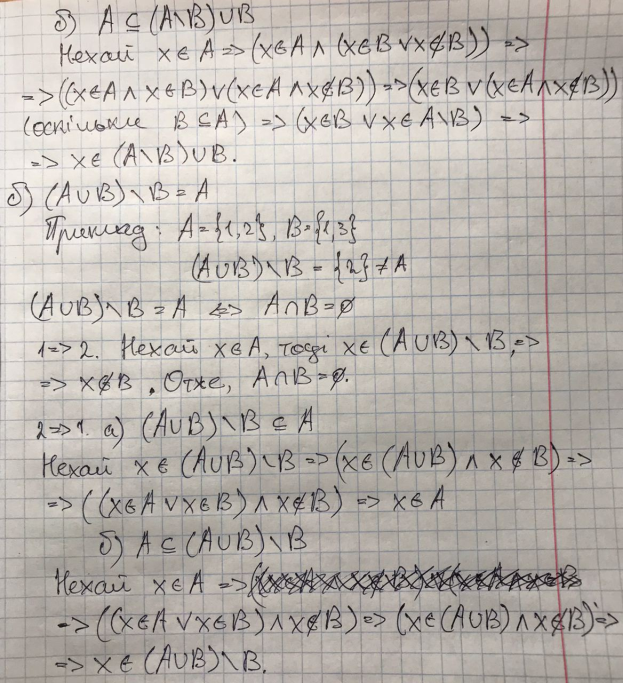 б) A ⊆ (A\B)∪B
Нехай x∈A => (x∈A ∧ (x∈B ∨ x∉B)) =>
=> ((x∈A ∧ x∈B) ∨ (x∈A ∧ x∉B)) => (x∈B ∨ (x∈A ∧ x∉B))
(оскільки B⊆A) => (x∈B ∨ x∈A\B) =>
=> x∈(A\B)∪B.
б) (A∪B)\B = A
Приклад: A={1,2}, B={1,3}
(A∪B)\B = {2} ≠ A
(A∪B)\B = A <=> A∩B=∅
1=>2. Нехай x∈A, тоді x∈(A∪B)\B, =>
=> x∉B. Отже, A∩B=∅.
2=>1. а) (A∪B)\B ⊆ A
Нехай x∈(A∪B)\B => (x∈(A∪B) ∧ x∉B) =>
=> ((x∈A ∨ x∈B) ∧ x∉B) => x∈A
б) A ⊆ (A∪B)\B
Нехай x∈A =>
=> ((x∈A ∨ x∈B) ∧ x∉B) => (x∈(A∪B) ∧ x∉B) =>
=> x∈(A∪B)\B.